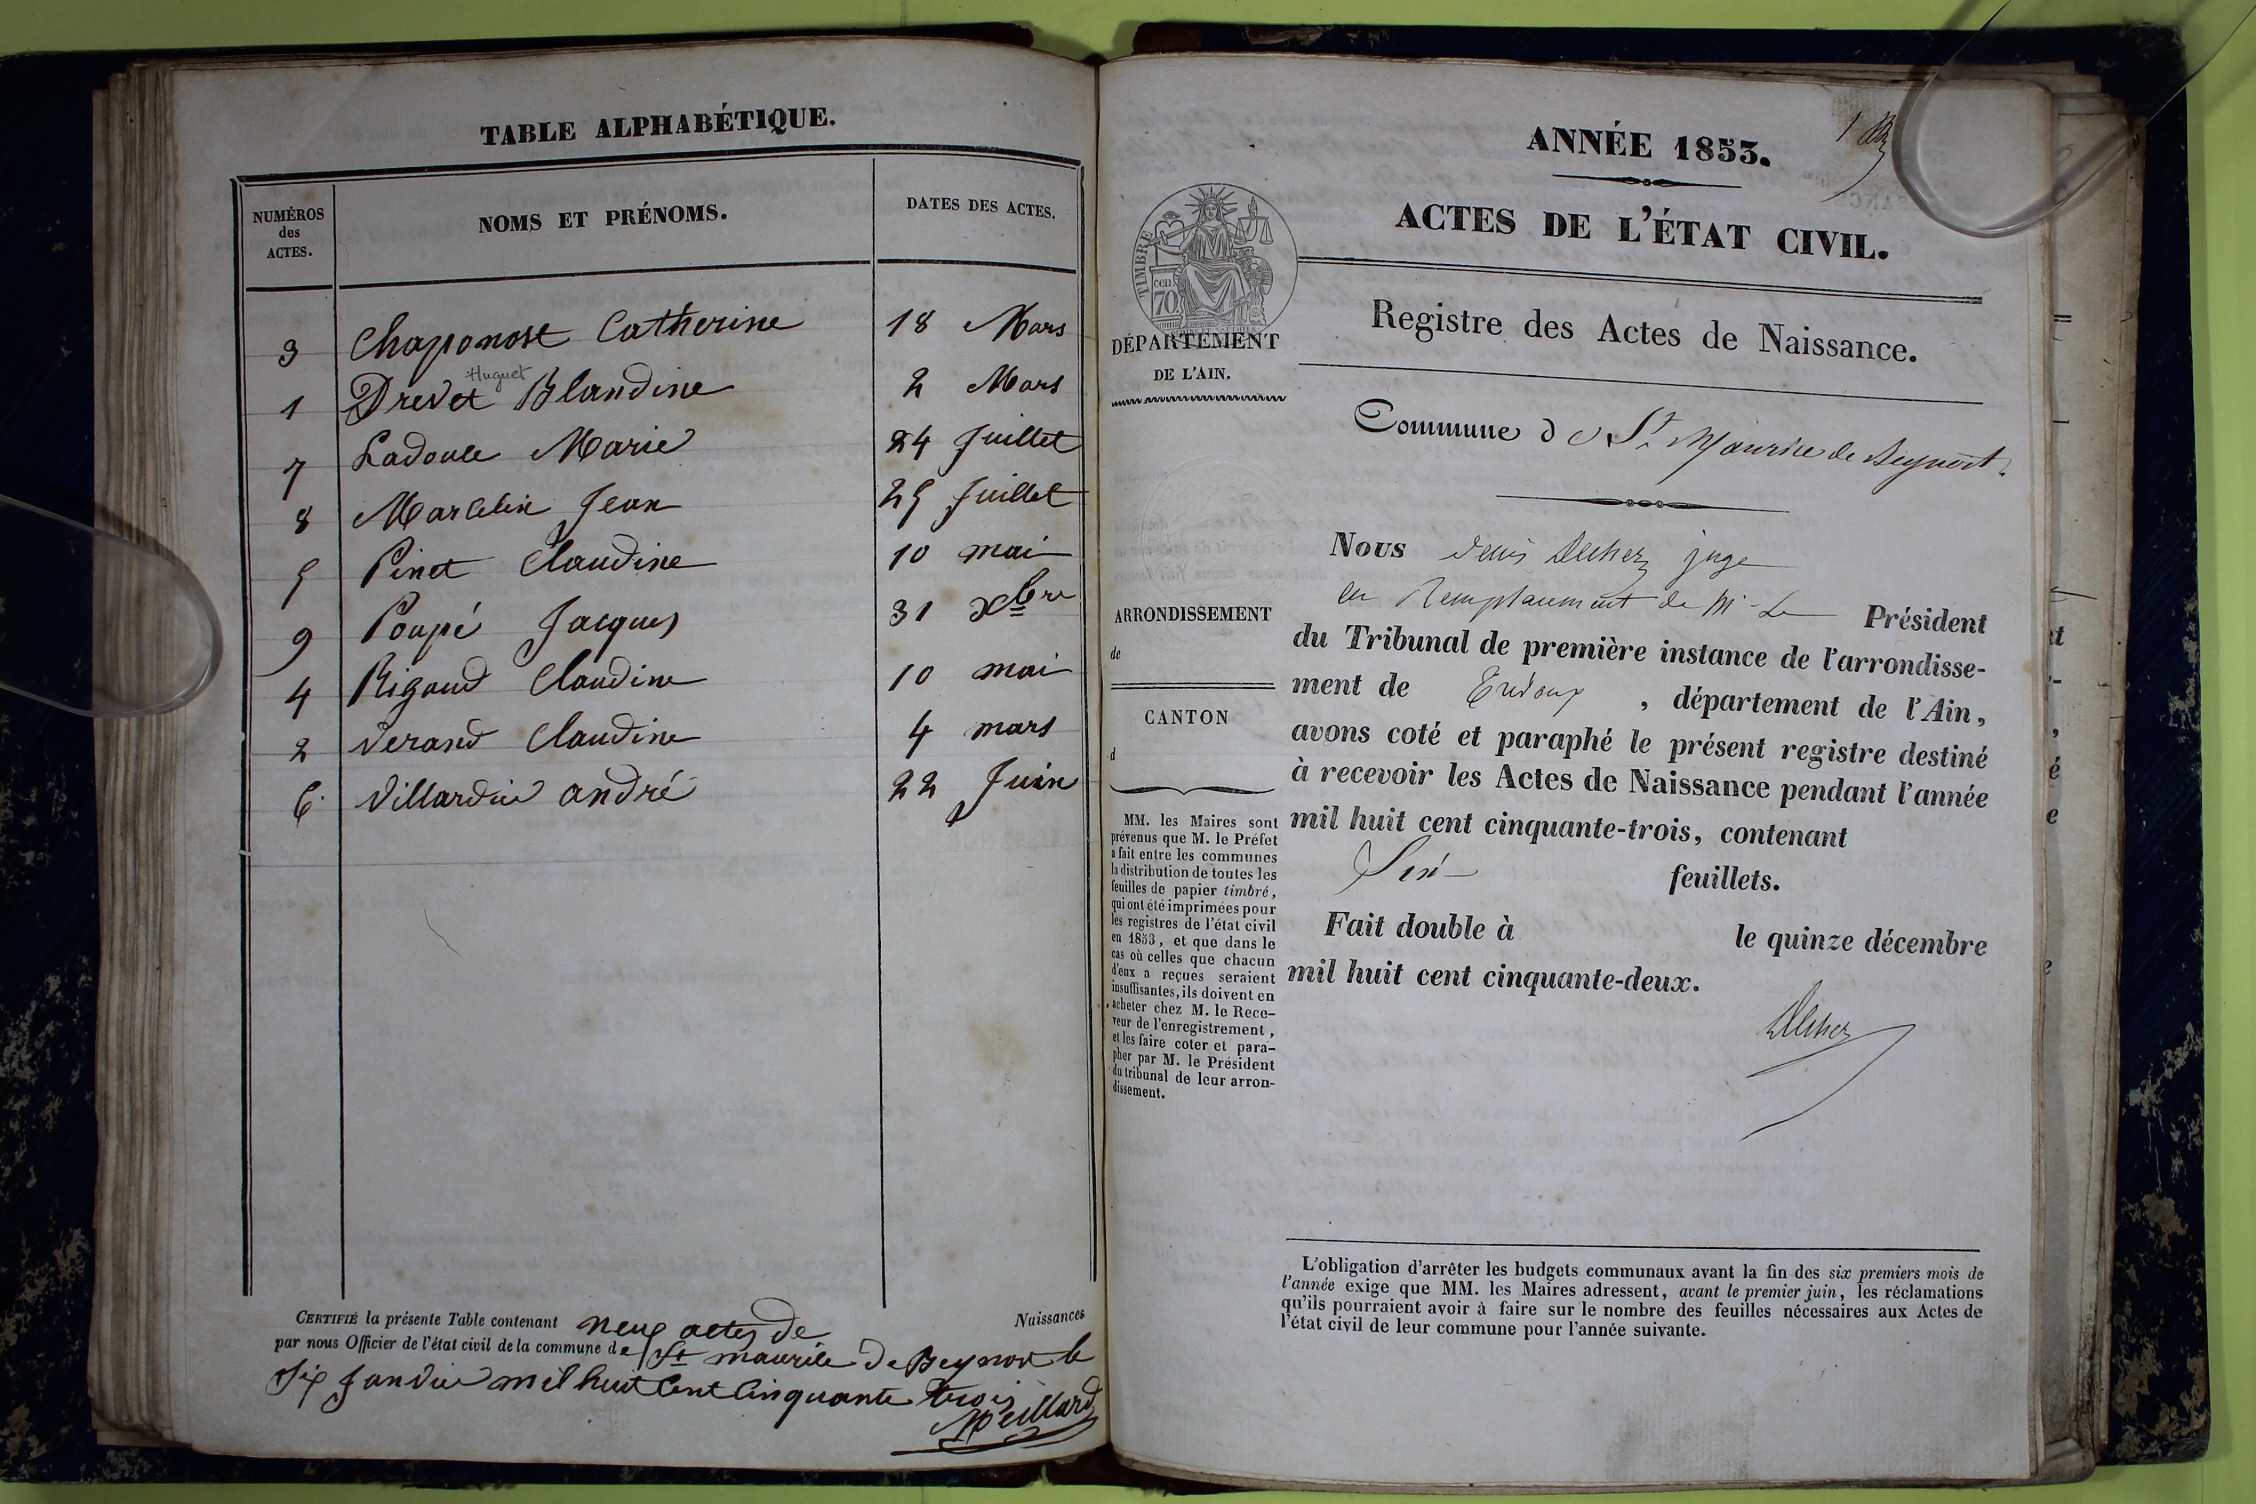 TABLE ALPHABÉTIQUE.
NUMÉROS
des
ACTES.
NOMS ET PRÉNOMS.
DATES DES ACTES.
3 Chaponost Catherine 18 Mars
Huguet
1 Drevet Blandine 2 Mars
7 Ladoule Marie 24 Juillet
8 Marcelin Jean 25 Juillet
5 Pinet Claudine 10 mai
9 Poupé Jacques 31 Xbre
4 Rigaud Claudine 10 mai
2 Verand Claudine 4 mars
6 Villardier andré 22 Juin
CERTIFIÉ la présente Table contenant neuf actes de Naissances
par nous Officier de l'état civil de la commune de St maurice de Beynost le
Six Janvier mil huit Cent Cinquante trois
Meillard
ANNÉE 1853.
1
ACTES DE L'ÉTAT CIVIL.
TIMBRE
cen.
70
DÉPARTEMENT
DE L'AIN.
Registre des Actes de Naissance.
Commune de St Maurice de Beynost.
Nous Denis juge
en Remplacement de Mr Le Président
du Tribunal de première instance de l'arrondisse-
ment de Trévoux, département de l'Ain,
avons coté et paraphé le présent registre destiné
à recevoir les Actes de Naissance pendant l'année
mil huit cent cinquante-trois, contenant
Six feuillets.
Fait double à le quinze décembre
mil huit cent cinquante-deux.
ARRONDISSEMENT
de
CANTON
d
MM. les Maires sont
prévenus que M. le Préfet
a fait entre les communes
la distribution de toutes les
feuilles de papier timbré,
qui ont été imprimées pour
les registres de l'état civil
en 1853, et que dans le
cas où celles que chacun
d'eux a reçues seraient
insuffisantes, ils doivent en
acheter chez M. le Rece-
veur de l'enregistrement,
et les faire coter et para-
pher par M. le Président
du tribunal de leur arron-
dissement.
L'obligation d'arrêter les budgets communaux avant la fin des six premiers mois de
l'année exige que MM. les Maires adressent, avant le premier juin, les réclamations
qu'ils pourraient avoir à faire sur le nombre des feuilles nécessaires aux Actes de
l'état civil de leur commune pour l'année suivante.